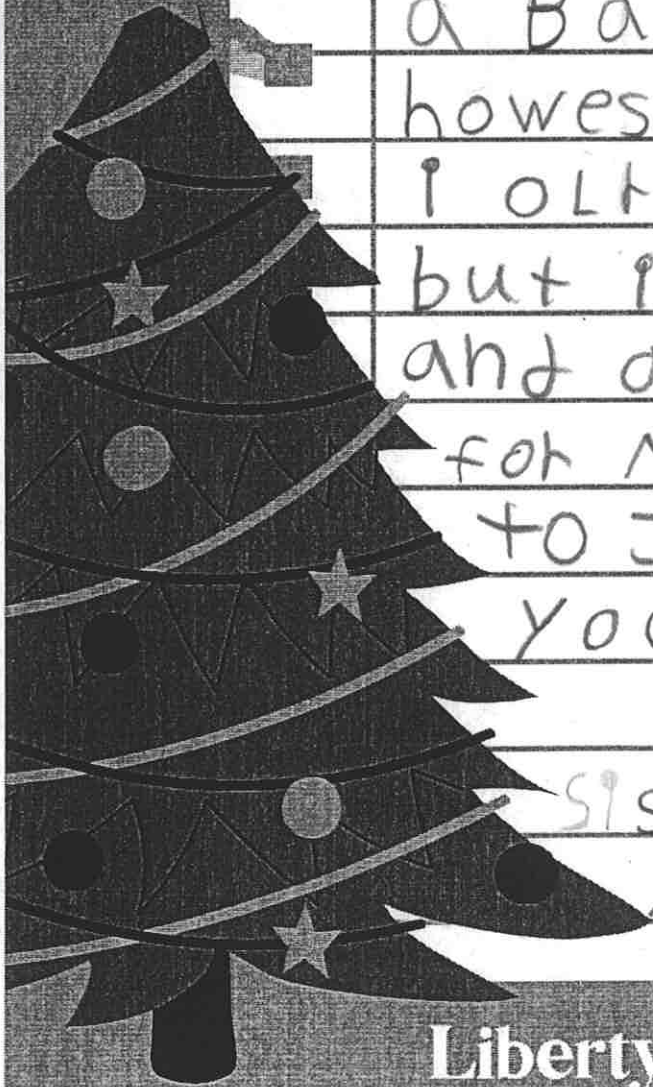 a Ba
howes
i oLr
but i
and a
for
to J
you
sis
Liberty